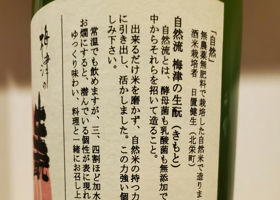 「自然」
無農薬無肥料で栽培した自然米で造りま
酒米栽培者 日置健生(北栄町)
自然流 梅津の生酛(きもと)
自然流とは、酵母菌も乳酸菌も無添加で
中からそれらを招いて造ること。
出来るだけ米を磨かず、自然米の持つ力
に引き出し、活かしました。この力強い個
常温でも飲めますが、三、四割ほど加水
お燗にすると、潜んでいる個性が表に現れ
ゆっくり味わい、料理と一緒にお召し上
梅津の